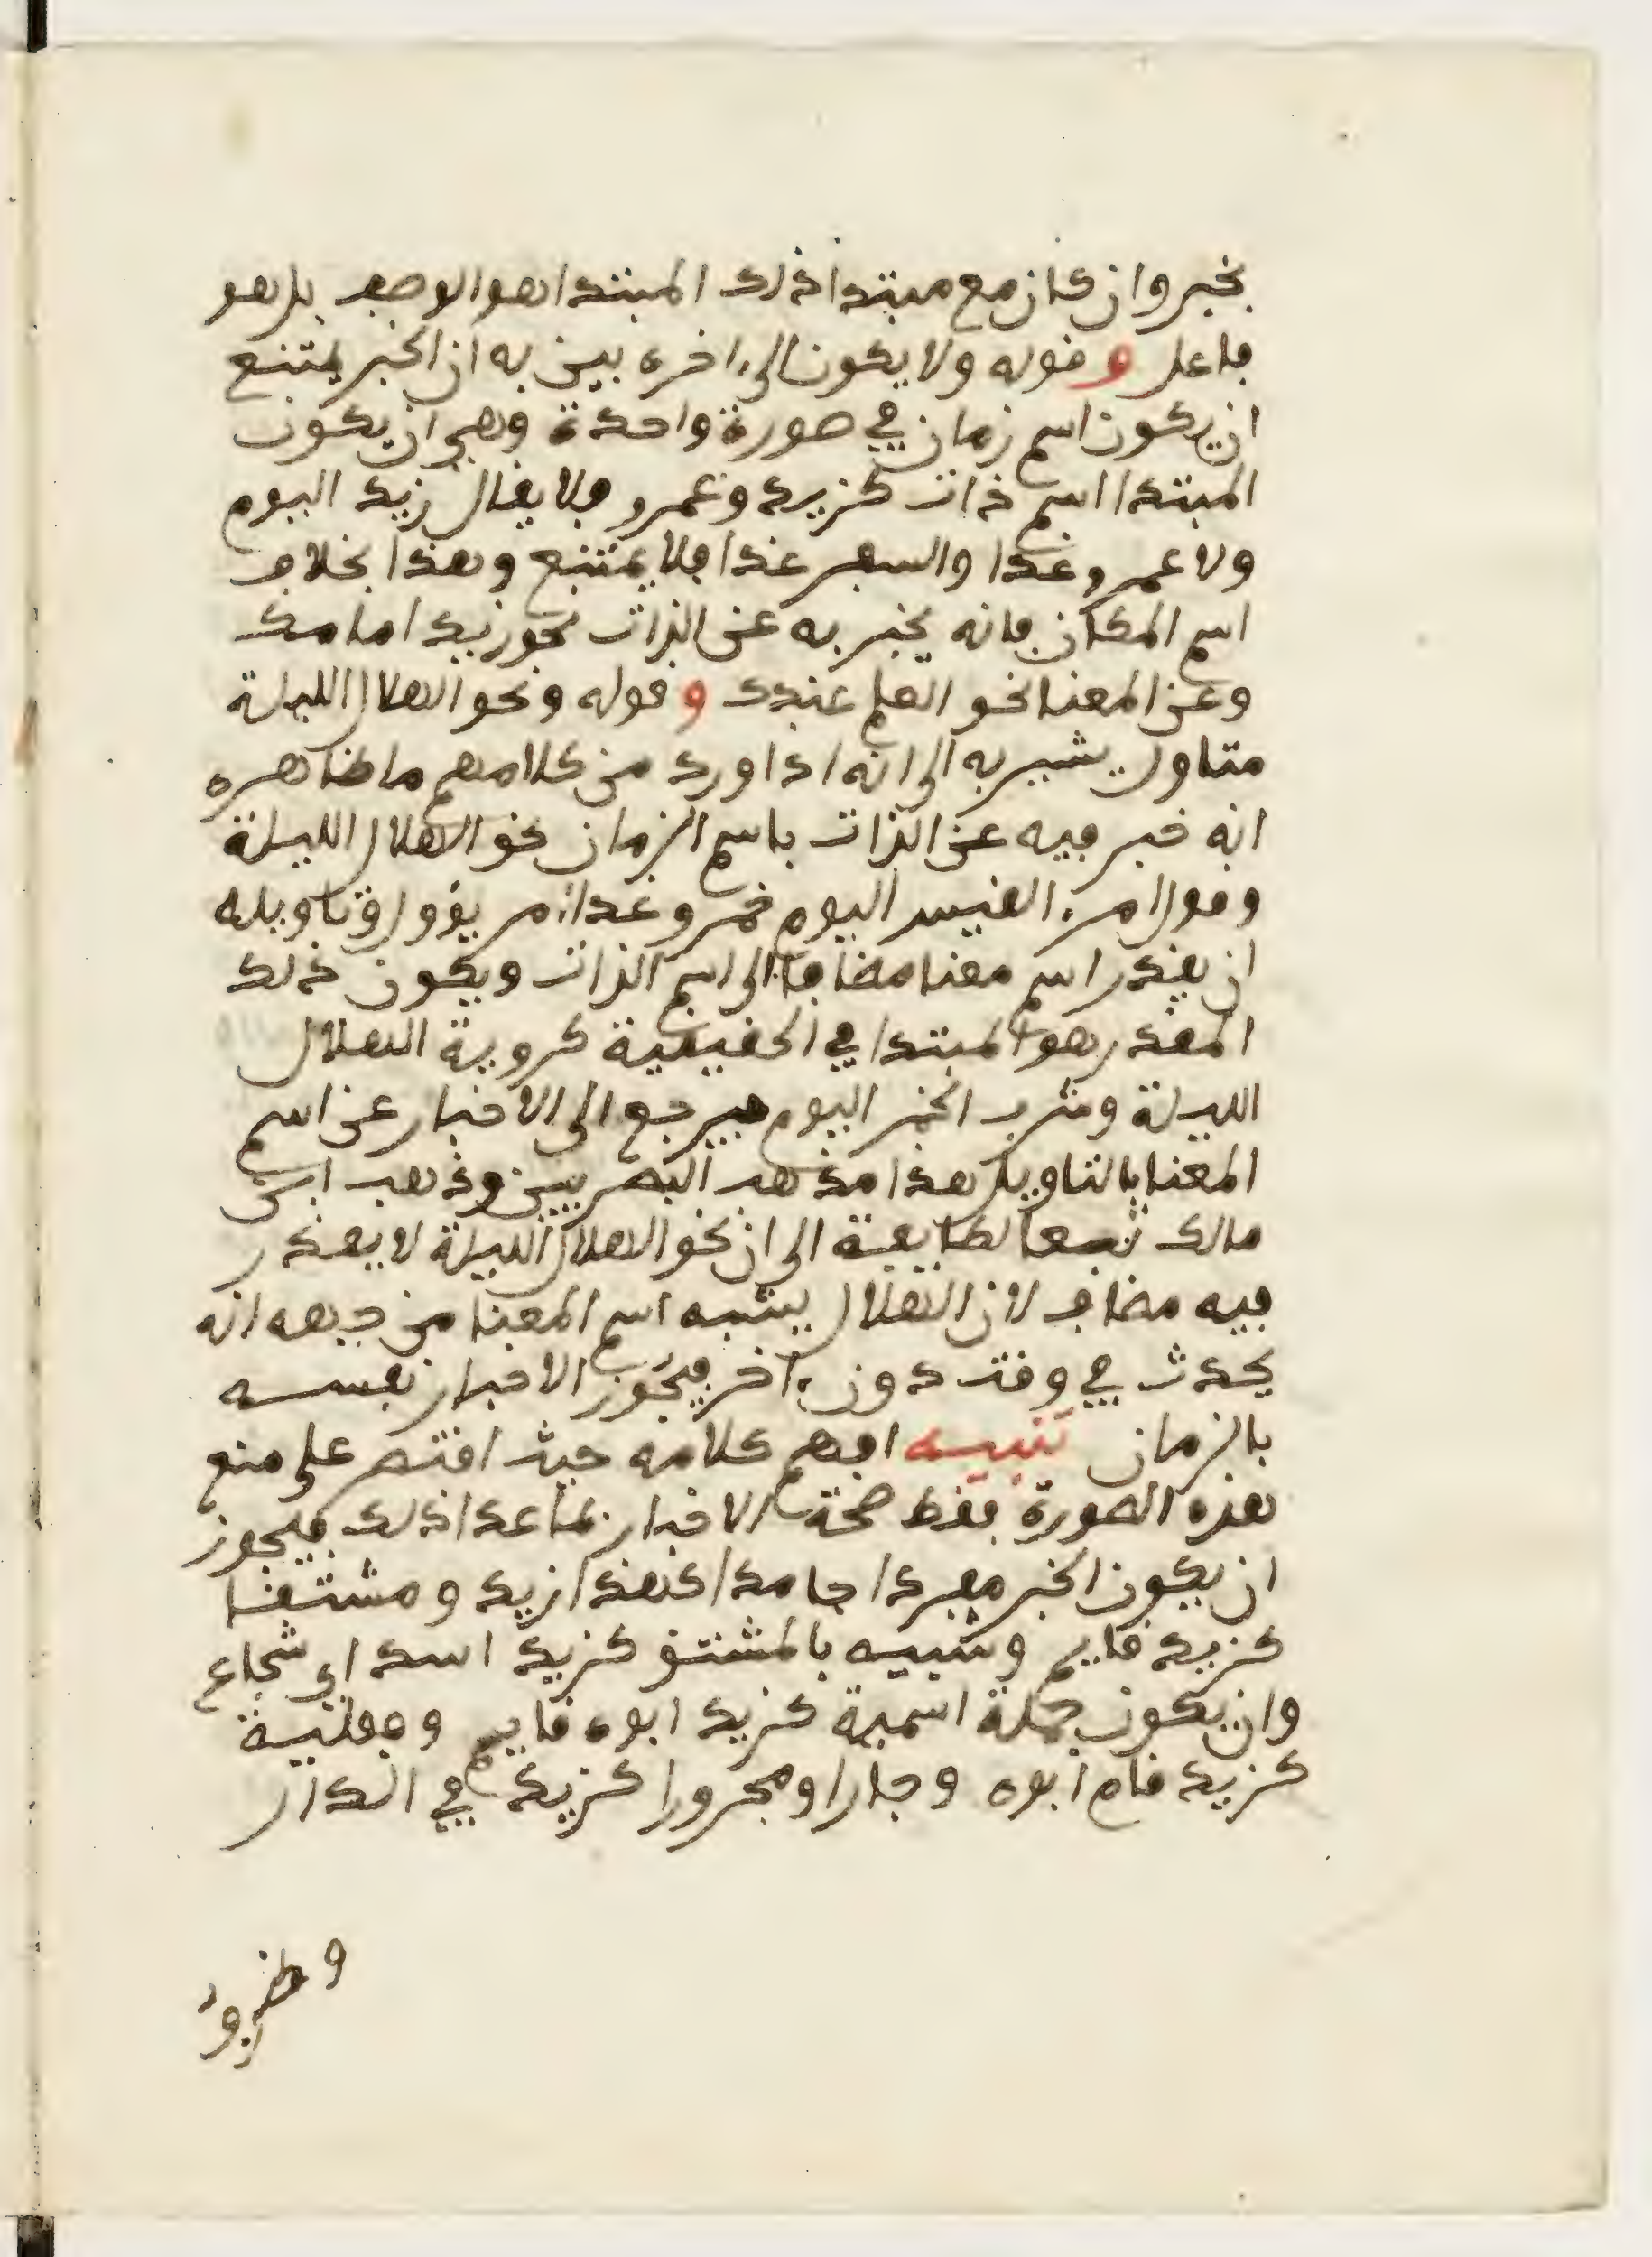 بخبر وان كان مع مبتدا ذلك المبتدا هو الوصف بل هو
فاعل و قوله ولا يكون الى ءاخره بين به ان الخبر يمتنع
ان يكون اسم زمان في صورة واحدة وهي ان يكون
المبتدا اسم ذات كزيد وعمرو فلا يقال زيد اليوم
ولا عمرو غدا والسفر غدا فلا يمتنع وهذا بخلاف
اسم المكان فانه يخبر به عن الذات نحو زيد امامك
وعن المعنا نحو العلم عندك و قوله ونحو الهلال الليلة
متاول يشير به الى انه اذا ورد من كلامهم ما ظاهره
انه خبر فيه عن الذات باسم الزمان نحو الهلال الليلة
وقول امرء القيس اليوم خمر وغدا امر يؤول وتاويله
ان يقدر اسم معنا مضافا الى اسم الذات ويكون ذلك
المقدر هو المبتدا في الحقيقية كروية الهلال
الليلة وشرب الخمر اليوم فيرجع الى الاخبار عن اسم
المعنا بالتاويل هذا مذهب البصريين وذهب ابن
مالك تبعا لطايفة الى ان نحو الهلال الليلة لا يقدر
فيه مضاف لان الهلال يشبه اسم المعنا من جيهه انه
يحدث في وقت دون ءاخر فيجوز الاخبار نفسه
بالزمان تنبيه افهم كلامه حيث اقتصر على منع
هذه الصورة فقط صحة الاخبار بما عدا ذلك فيجوز
ان يكون الخبر مفردا جامدا كهذا زيد ومشتقا
كزيد قايم وشبيه بالمشتق كزيد اسد اي شجاع
وان يكون جملة اسمية كزيد ابوه قايم وفعلية
كزيد قام ابوه وجارا ومجرورا كزيد في الدار
وظرفا